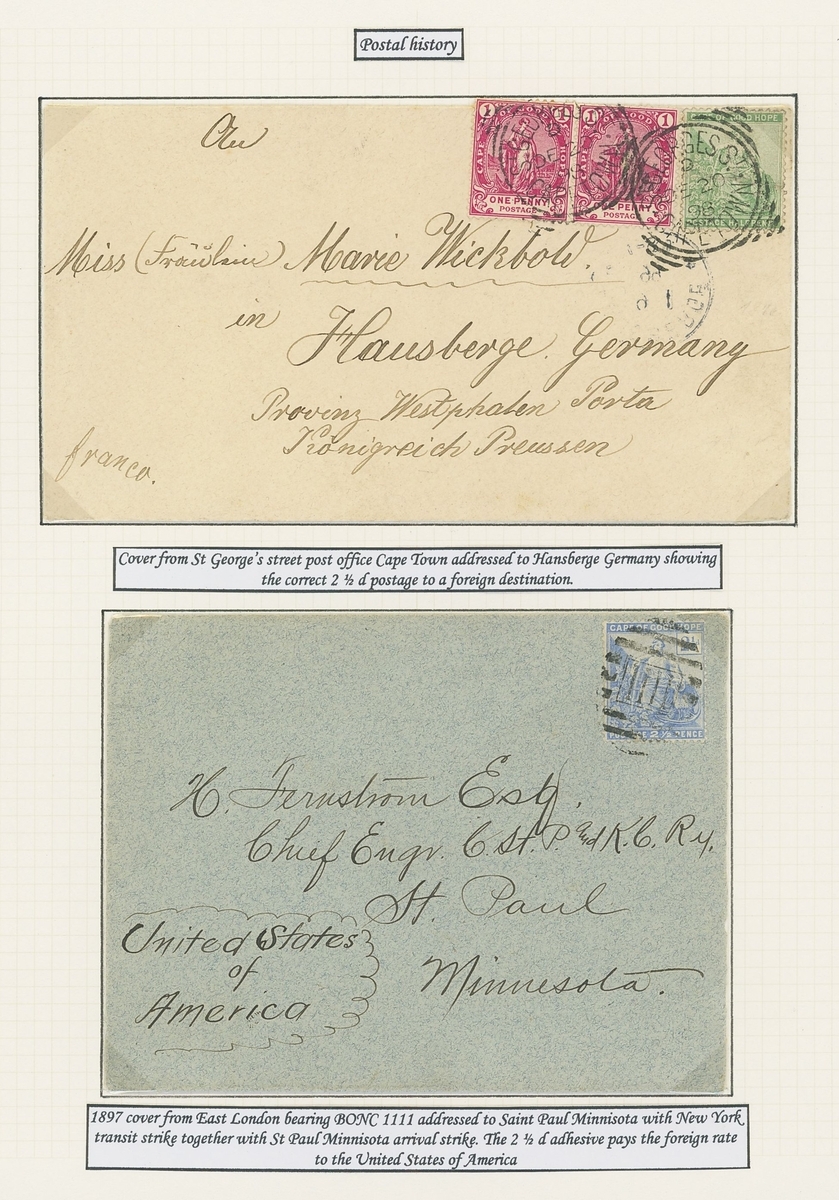 Postal history
An
1 1
CAPE OF GOOD HOPE
ONE PENNY
POSTAGE
PENNY
POSTAGE
Miss (Fräulein) Marie Wickbold.
in
Hausberge. Germany
Provinz Westphalen Porta
Königreich Preussen
franco.
Cover from St George's street post office Cape Town addressed to Hansberge Germany showing
the correct 2 ½ d postage to a foreign destination.
CAPE OF GOOD HOPE
2½ PENCE
H. Fernström Esq.
Chief Engr. C. St. P. and K. C. Ry.
St. Paul
United States
of
America
Minnesota.
1897 cover from East London bearing BONC 1111 addressed to Saint Paul Minnisota with New York
transit strike together with St Paul Minnisota arrival strike. The 2 ½ d adhesive pays the foreign rate
to the United States of America